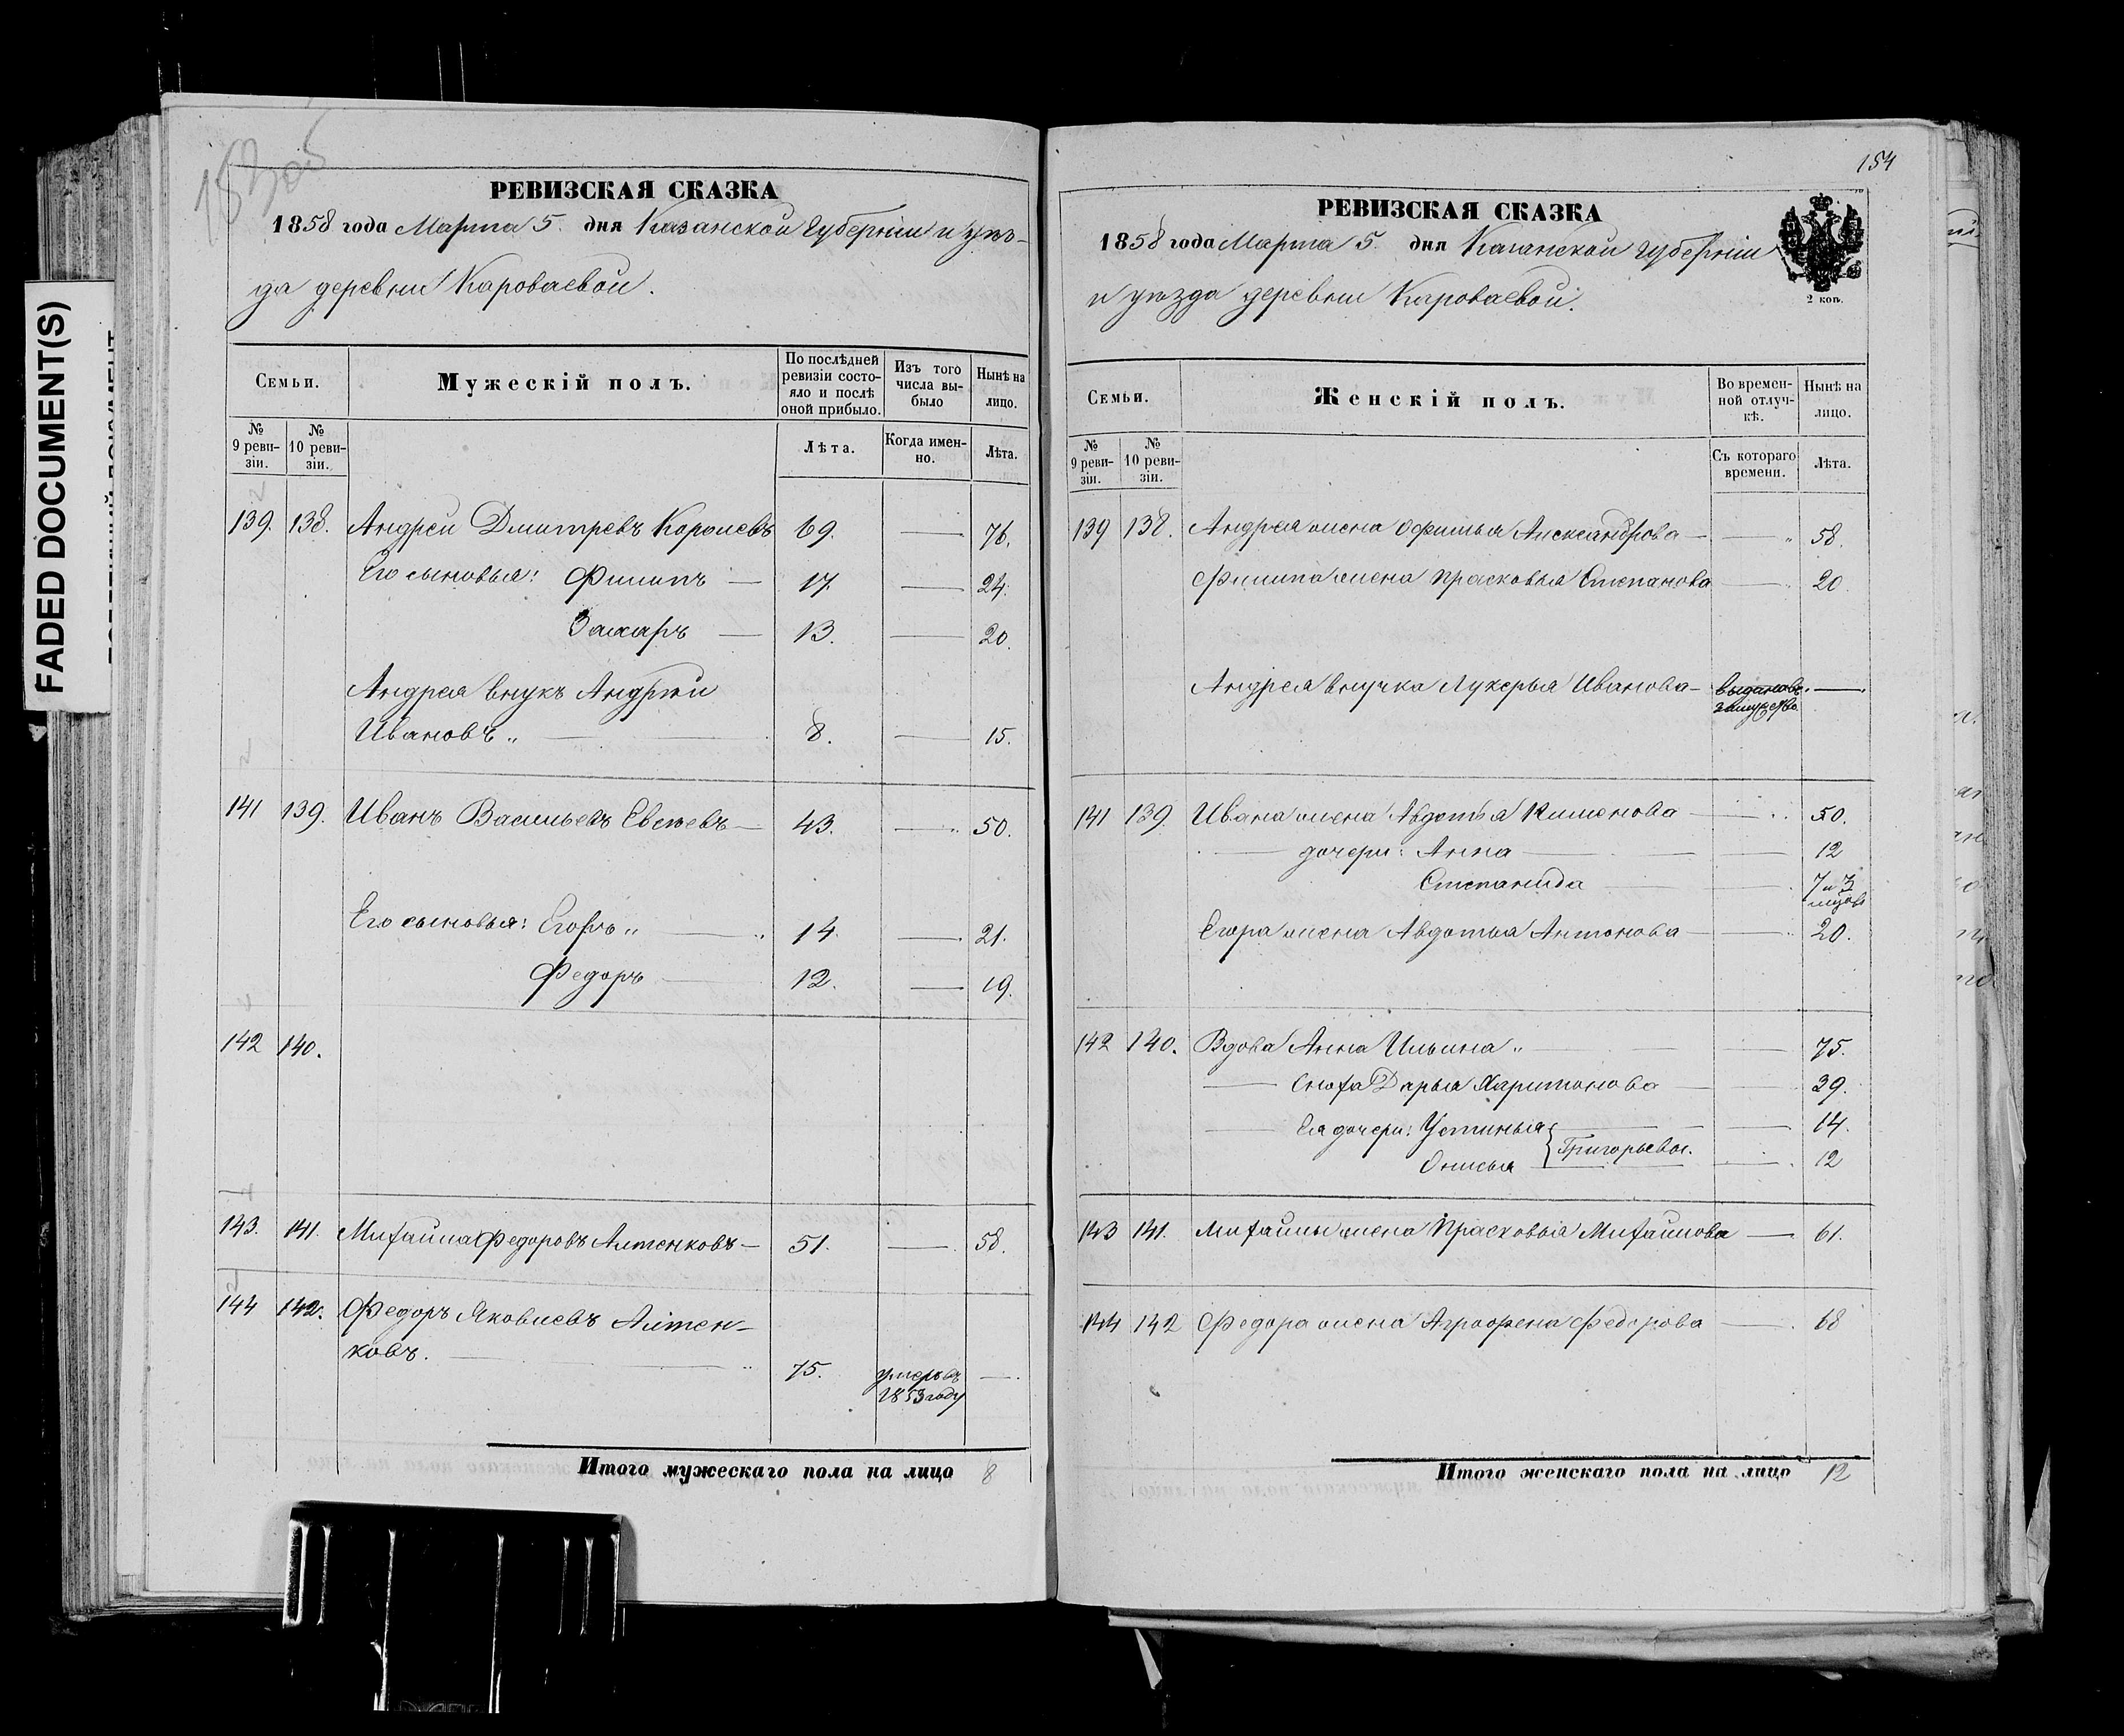 FADED DOCUMENT(S)
153 об
РЕВИЗСКАЯ СКАЗКА
1858 года Марта 5. дня Казанской Губерніи и уѣз-
да деревни Кароваевой.
Семьи.
Мужескій полъ.
По послѣдней ревизіи состо-яло и послѣ оной прибыло.
Изъ того числа вы-было
Нынѣ на лицо.
№ 9 реви-зіи.
№ 10 реви-зіи.
Лѣта.
Когда имен-но.
Лѣта.
139. 138. Андрей Дмитревъ Королевъ 69. — 76.
Его сыновья: Филипъ — 17. — 24.
Захаръ — 13. — 20.
Андрея внукъ Андрѣй
Ивановъ „ — 8. — 15.
141 139. Иванъ Васильевъ Евсѣевъ — 43. — 50.
Его сыновья: Егоръ „ — 14. — 21.
Федоръ — 12. — 19.
142 140.
143. 141. Михайла Федоровъ Алтенковъ — 51. — 58.
144 142. Федоръ Яковлевъ Алтен-
ковъ. — 75. умеръ въ —
1853 году
Итого мужескаго пола на лицо 8
154
РЕВИЗСКАЯ СКАЗКА
1858 года Марта 5. дня Казанской Губерніи
и уѣзда деревни Кароваевой.
2 коп.
Семьи.
Женскій полъ.
Во времен-ной отлуч-кѣ.
Нынѣ на лицо.
№ 9 реви-зіи.
№ 10 реви-зіи.
Съ котораго времени.
Лѣта.
139 138. Андрея жена Офимья Александрова — 58.
Филипа жена Прасковья Степанова — 20.
Андрея внучка Лукерья Иванова — выдана въ —
замужство
141 139. Ивана жена Авдотья Климонова — 50.
— дочери: Анна — 12
Степанида — 7 и 3
мѣсяц
Егора жена Авдотья Антонова — 20.
142 140. Вдова Анна Ильина „ — 75.
— Сноха Дарья Харитонова — 39.
— Ея дочери: Устинья — 14.
Григорьевы.
Онисья — 12
143 141. Михайлы жена Прасковья Михайлова — 61.
144 142 Федора жена Аграфена Федорова — 68
Итого женскаго пола на лицо 12